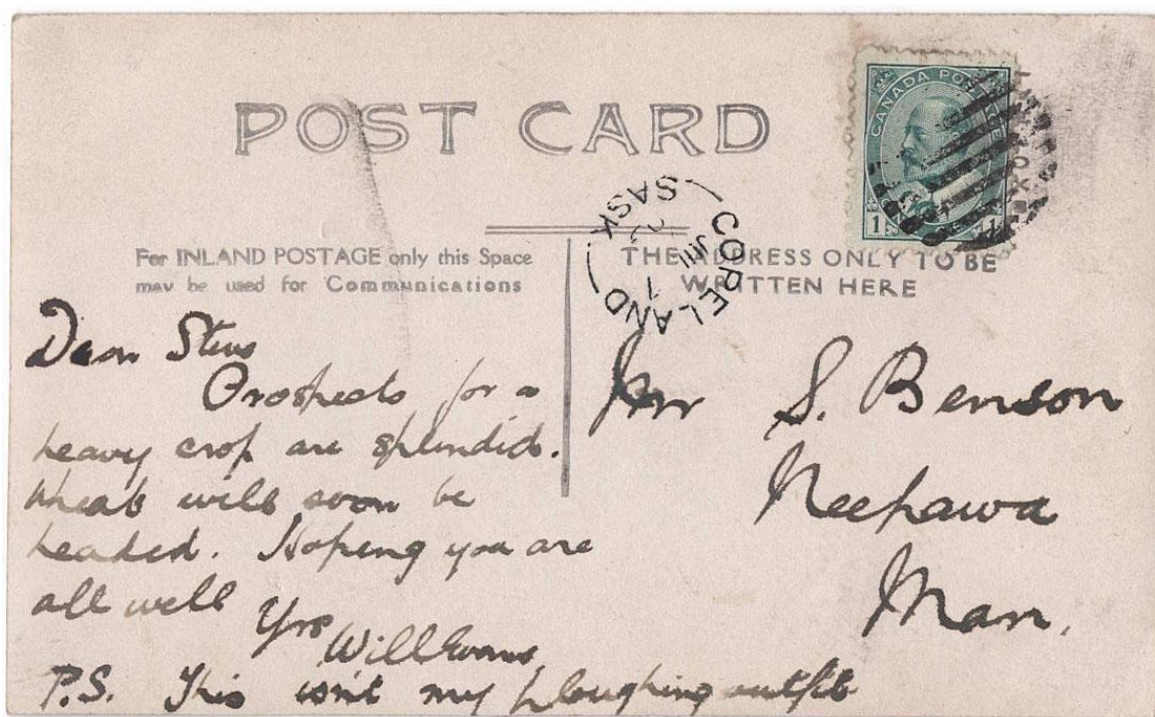 POST CARD
CANADA POSTAGE
1 1
COPELAND
SASK
JUL 7
For INLAND POSTAGE only this Space
may be used for Communications
THE ADDRESS ONLY TO BE
WRITTEN HERE
Dear
Prospects for a
heavy crop are splendid.
Wheat will soon be
headed. Hoping you are
all well
Yrs
Will Evans
P.S. This isn't my ploughing outfit
Mr S. Benson
Neepawa
Man.